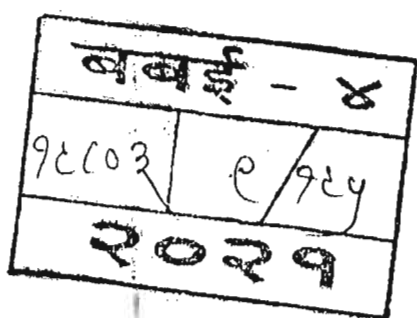 बबई - ४
१६८०३ ९/१६५
२०२१